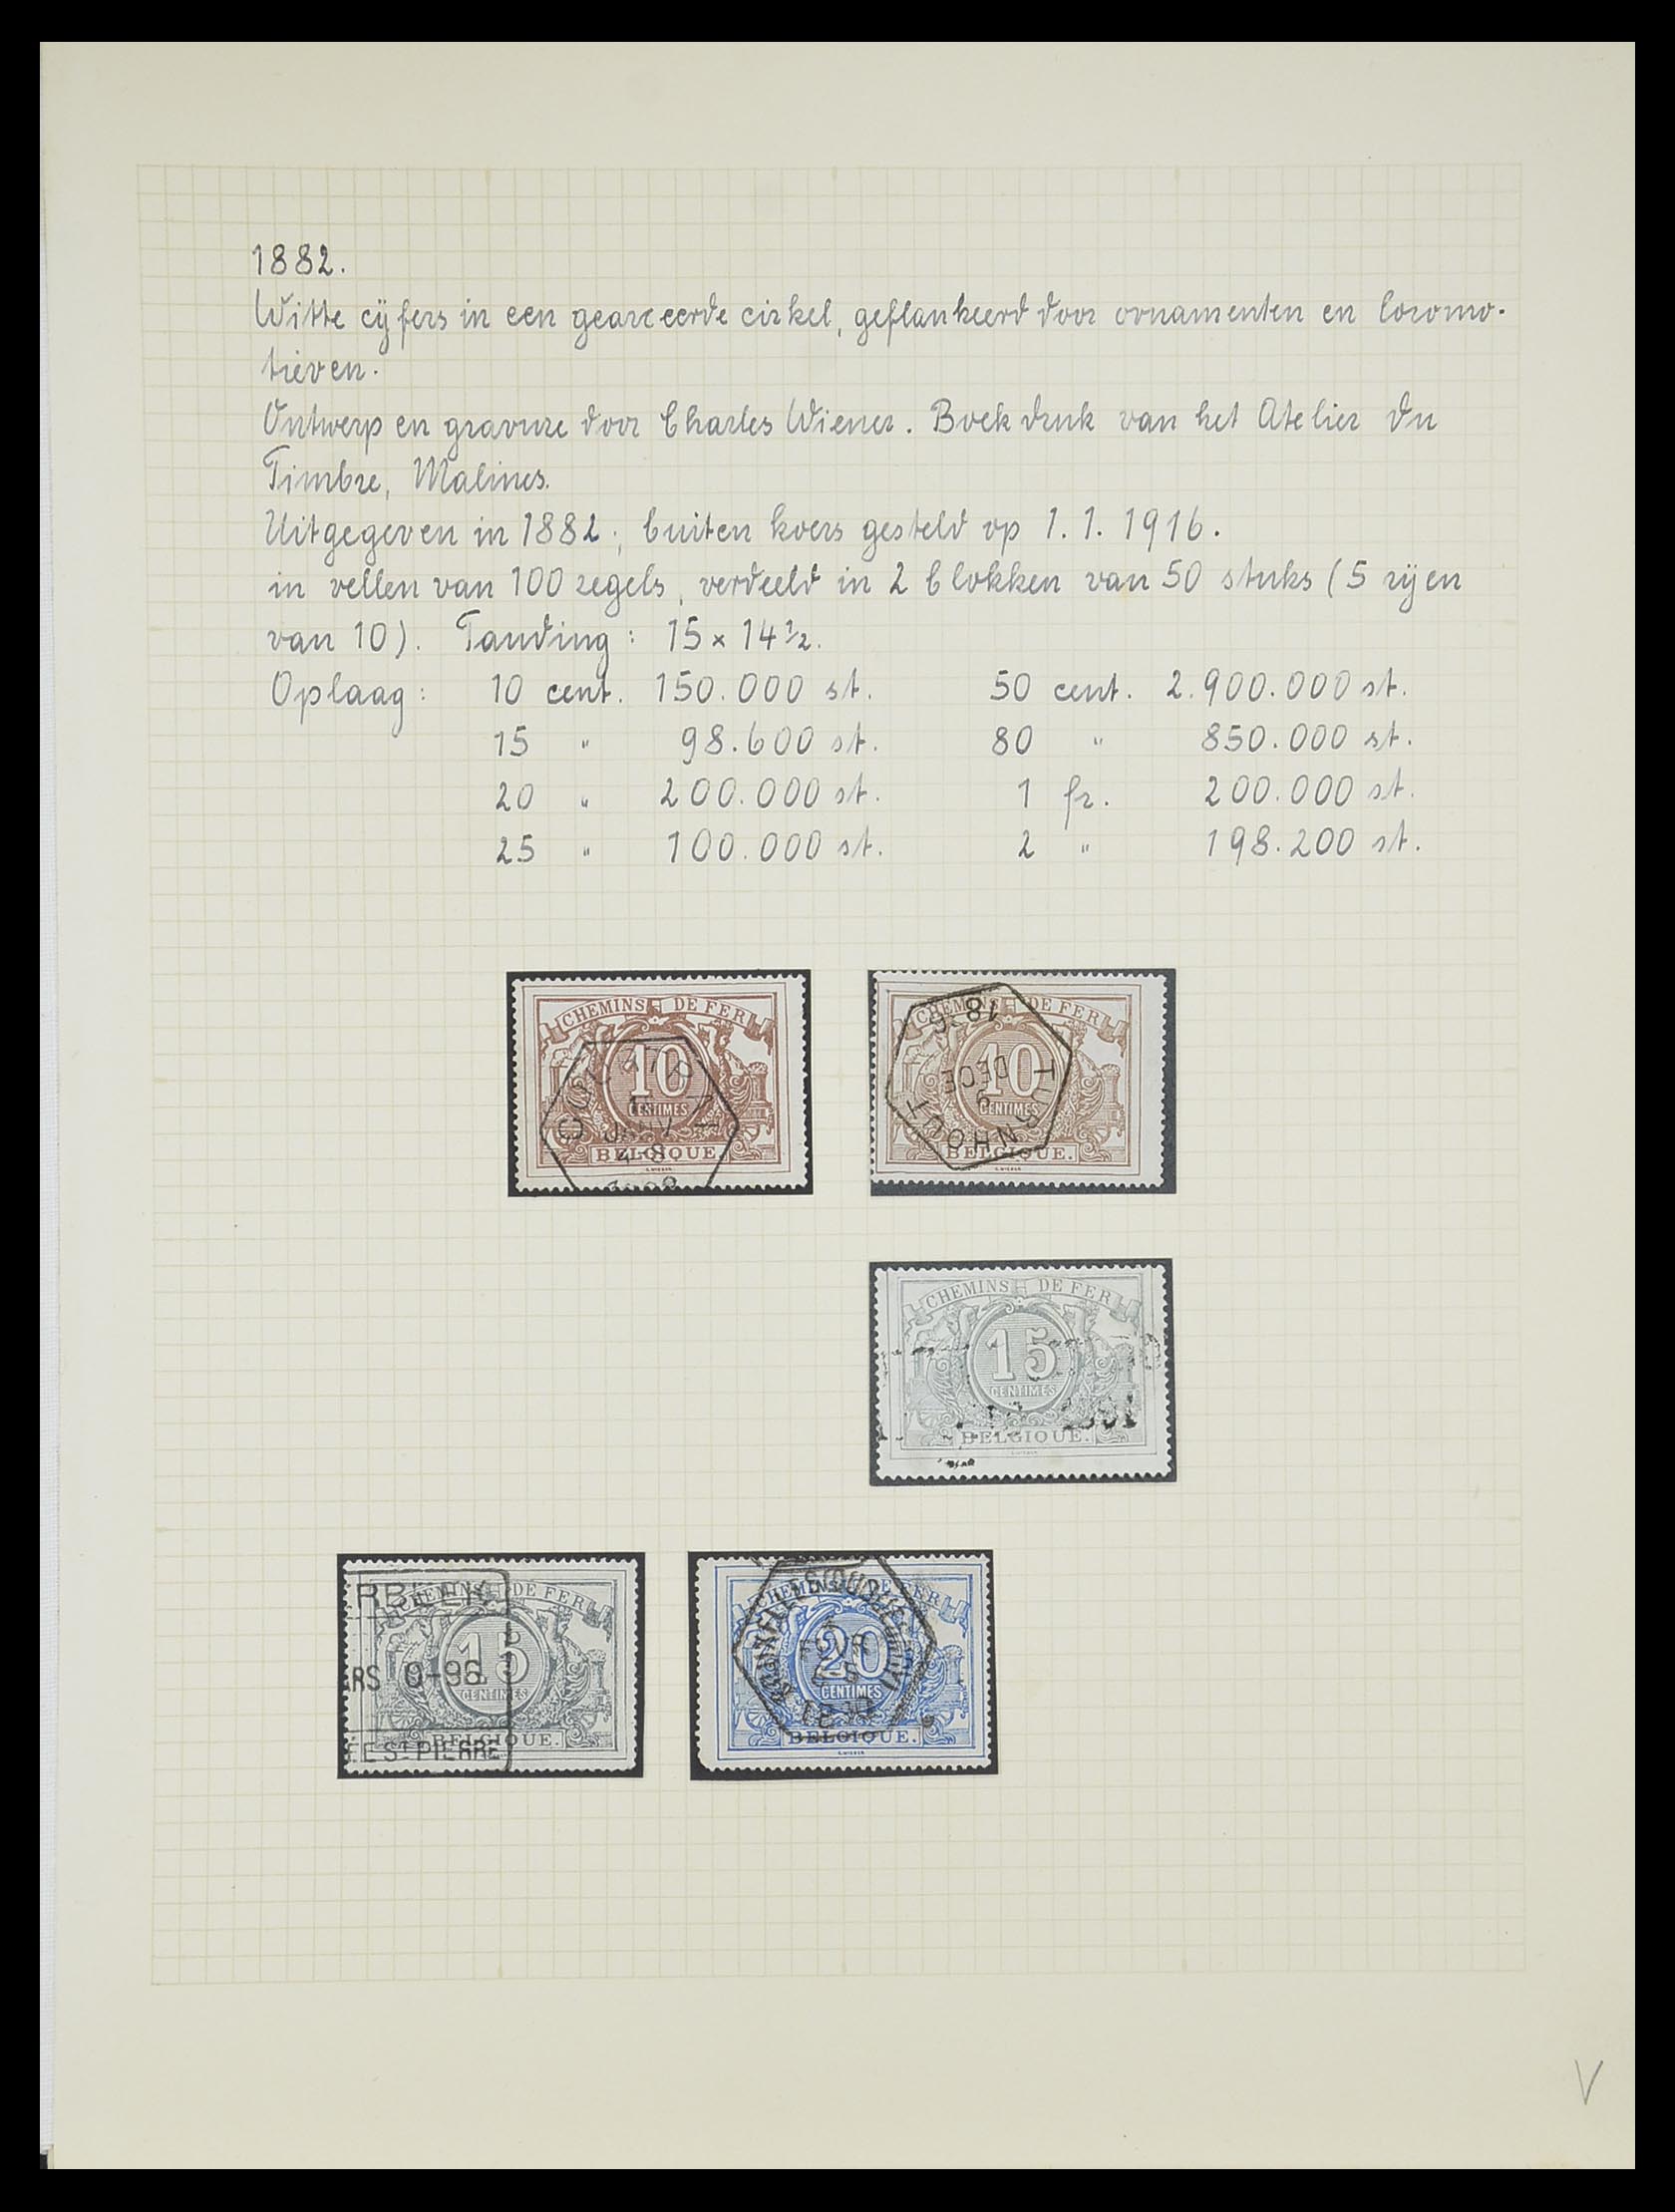 1882.
Witte cijfers in een gearceerde cirkel, geflankeerd door ornamenten en locomo-
tieven.
Ontwerp en gravure door Charles Wiener. Boekdruk van het Atelier du
Timbre, Malines.
Uitgegeven in 1882; buiten koers gesteld op 1.1.1916.
in vellen van 100 zegels, verdeeld in 2 blokken van 50 stuks (5 rijen
van 10). Tanding: 15 x 14 ½.
Oplaag: 10 cent. 150.000 st. 50 cent. 2.900.000 st.
15 " 98.600 st. 80 " 850.000 st.
20 " 200.000 st. 1 fr. 200.000 st.
25 " 100.000 st. 2 " 198.200 st.
CHEMINS DE FER
10
CENTIMES
BELGIQUE.
JANV
CHEMINS DE FER
10
CENTIMES
BELGIQUE.
TURNHOUT
9
DECE
18
CHEMINS DE FER
15
CENTIMES
BELGIQUE.
CHEMINS DE FER
15
CENTIMES
BELGIQUE.
ERBEEK
RS 0-96
EE ST PIERRE
CHEMINS DE FER
20
CENTIMES
BELGIQUE.
C. WIENER
V